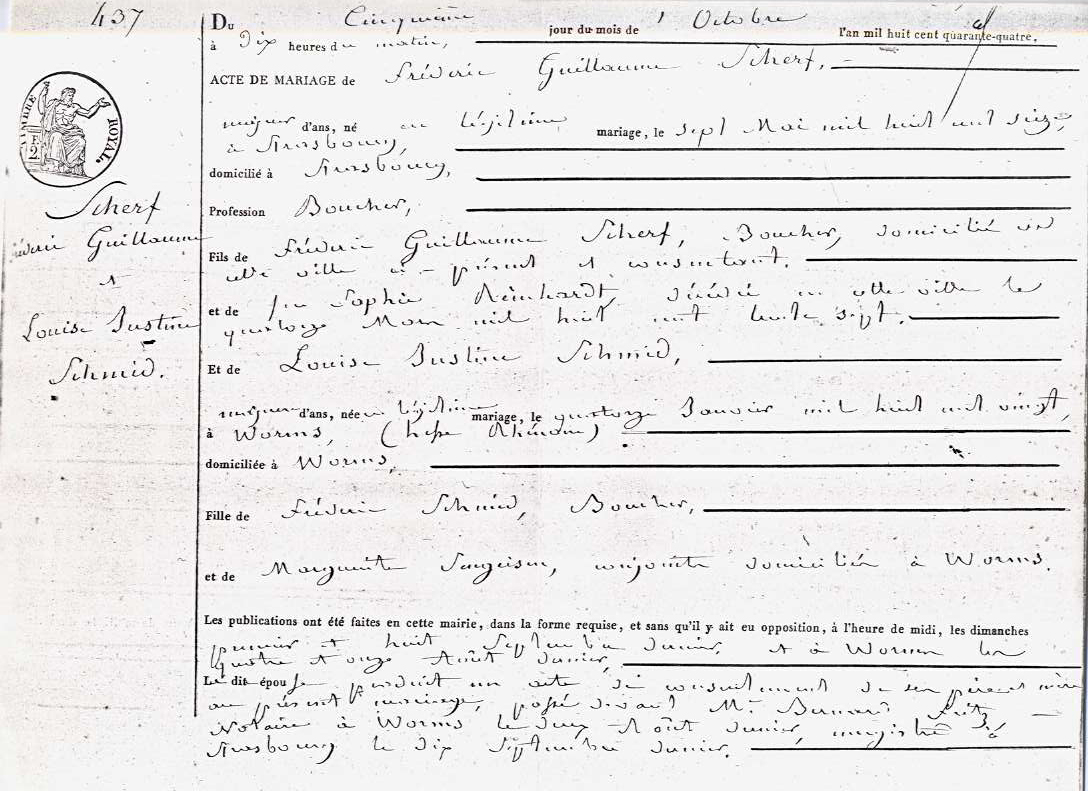 437
Du Cinquième jour du mois de d'Octobre l'an mil huit cent quarante-quatre,
à Dix heures du matin,
ACTE DE MARIAGE de Fréderic Guillaume Scherf,
majeur d'ans, né en légitime mariage, le sept Mai mil huit cent seize
à Strasbourg,
domicilié à Strasbourg,
Profession Boucher,
Fils de Fréderic Guillaume Scherf, Boucher, domicilié en
cette ville ci-présent et consentant.
et de feu Sophie Reinhardt, décédée en cette ville le
quatorze Mars mil huit cent trente sept.
Et de Louise Justine Schmid,
majeure d'ans, née en légitime mariage, le quatorze Janvier mil huit cent vingt,
à Worms, (hesse Rhénane)
domiciliée à Worms,
Fille de Fréderic Schmid, Boucher,
et de Marguerite conjointe domiciliés à Worms.
Les publications ont été faites en cette mairie, dans la forme requise, et sans qu'il y ait eu opposition, à l'heure de midi, les dimanches
premier et huit Septembre dernier, et à Worms les
quatre et onze Août dernier,
Le dit épou produit un acte de consentement de ses père et mère
au présent mariage, passé devant Mr. Bernard Fritz
Notaire à Worms le Août dernier, enregistré à
Strasbourg le dix Septembre dernier.
TIMBRE ROYAL.
F
2
Scherf
Fréderic Guillaume
et
Louise Justine
Schmid.